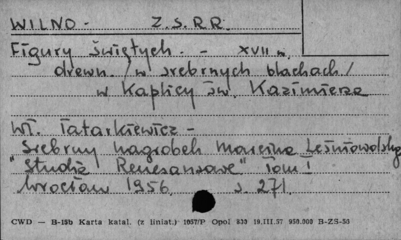 WILNO - Z.S.R.R.
Figury świętych. - XVII w.
drewn. /w srebrnych blachach/
w Kaplicy św. Kazimierza
Wł. Tatarkiewicz -
Srebrny nagrobek Marcina Leśniowolskiego
"Studia Renesansowe" Tom I
Wrocław 1956 s. 271.
CWD — B-15b Karta katal. (z liniat.) 1057/P Opol 933 19.III.57 B-ZS-56